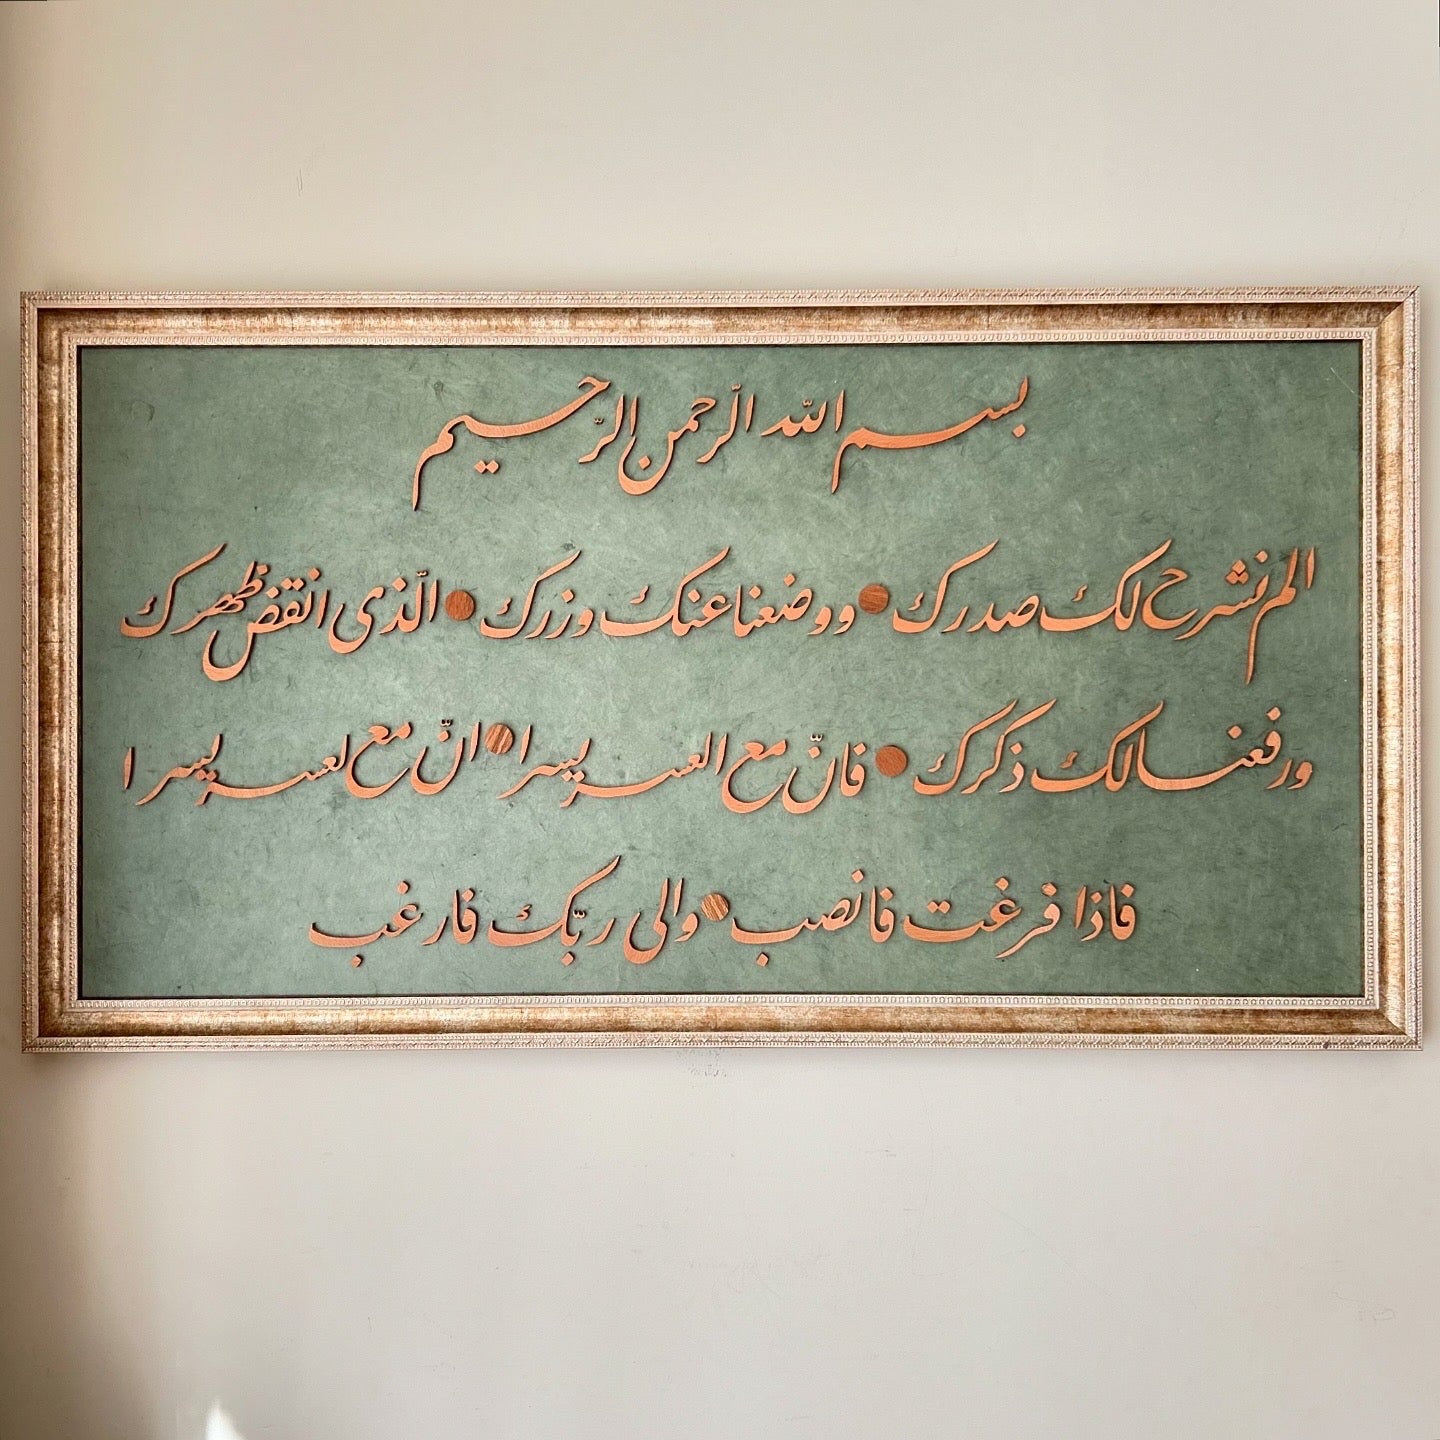 بسم الله الرّحمن الرّحيم
الم نشرح لک صدرک ● ووضعنا عنک وزرک ● الّذی انقض ظهرک
ورفعنا لک ذکرک ● فانّ مع العسر یسرا ● انّ مع لعسر یسرا
فاذا فرغت فانصب ● والی ربّک فارغب